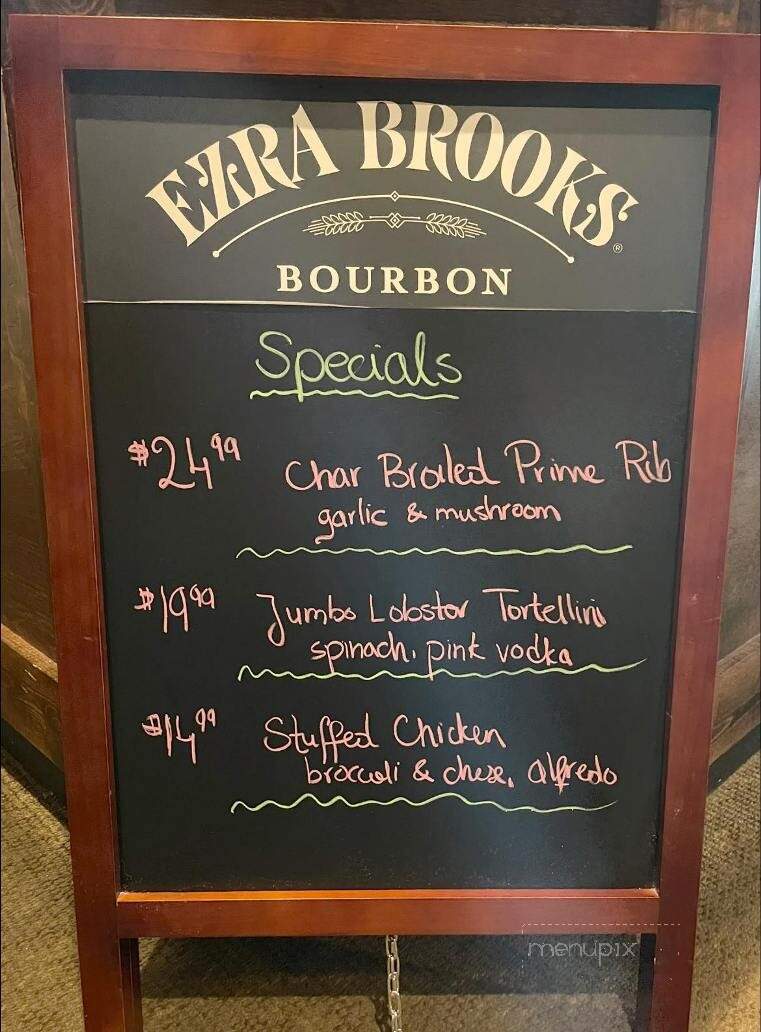 EZRA BROOKS®
BOURBON
Specials
$24.99 Char Broiled Prime Rib
garlic & mushroom
$19.99 Jumbo Lobster Tortellini
spinach, pink vodka
$14.99 Stuffed Chicken
broccoli & chese, alfredo
menupix